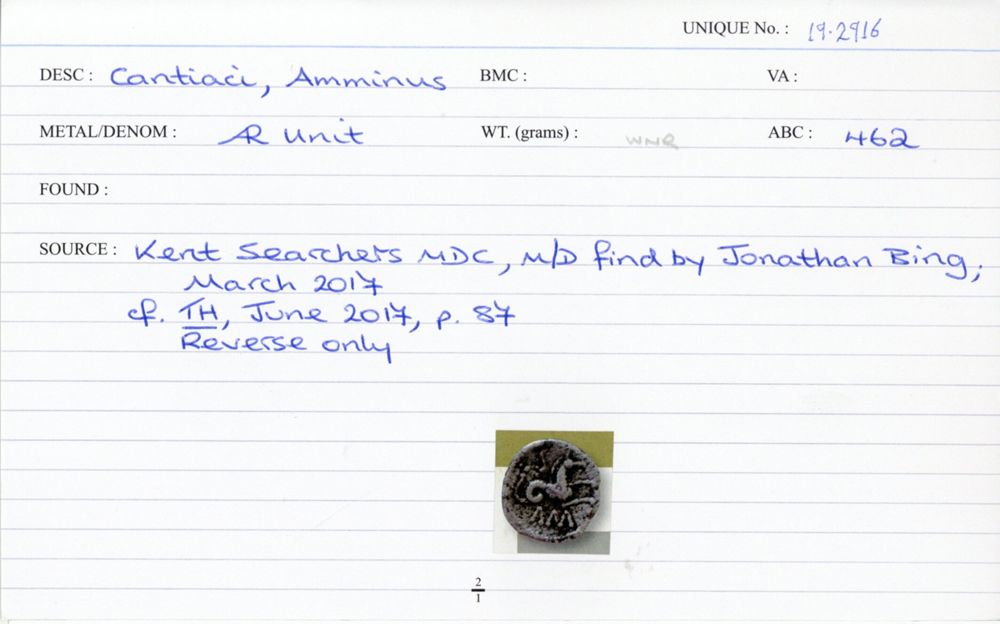 UNIQUE No. : 19.2916
DESC : Cantiaci, Amminus BMC : VA :
METAL/DENOM : AR Unit WT. (grams) : WNR ABC : 462
FOUND :
SOURCE : Kent Searchers MDC, M/D find by Jonathan Bing,
March 2017
cf. TH, June 2017, p. 87
Reverse only
AMI
2
1